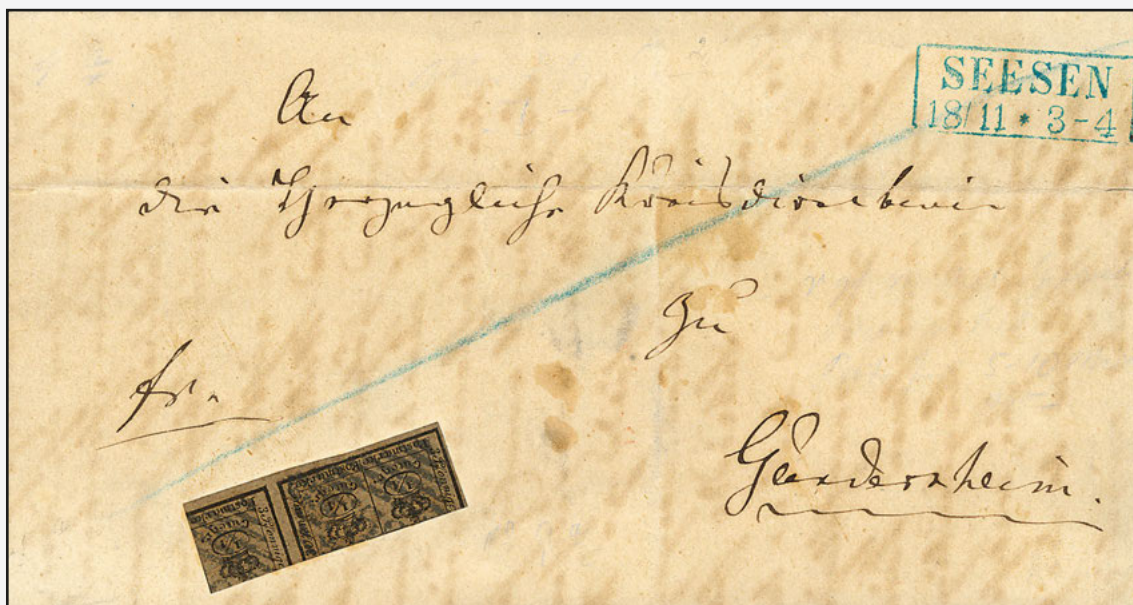 SEESEN
18/11 * 3-4
An
die Herzogliche Kreisdirection
zu
fr.
Gandersheim.
¼ ¼ ¼